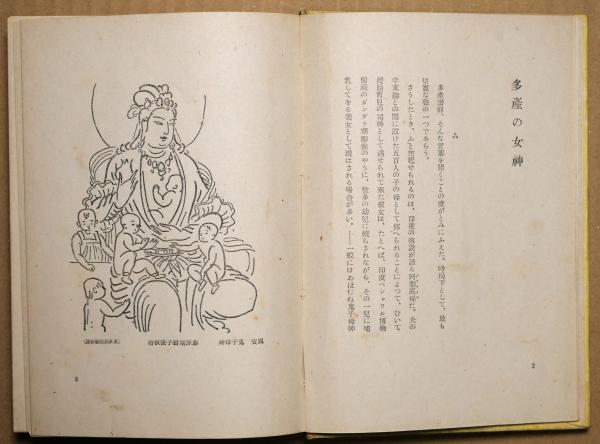 多産の女神
多産信仰、そんな言葉を聞くことの度がとみにふえた。時局下として、最も
切實な聲の一つであらう。
さうしたとき、ふと想起せられるのは、印度の傳説が語る訶梨底母だ。夫の
半支迦との間に設けた五百人の子の母として傳へられることによつて、ひいて
授胎育兒の司神として遇せられて來た彼女は、たとへば、印度ペシャワル博物
館藏のガンダラ期彫像のやうに、數多の幼兒に繞らされながら、その一兒に哺
乳してをる美女として現はされる場合が多い。――一般にはおほむね鬼子母神
2
國寶 鬼子母神
3